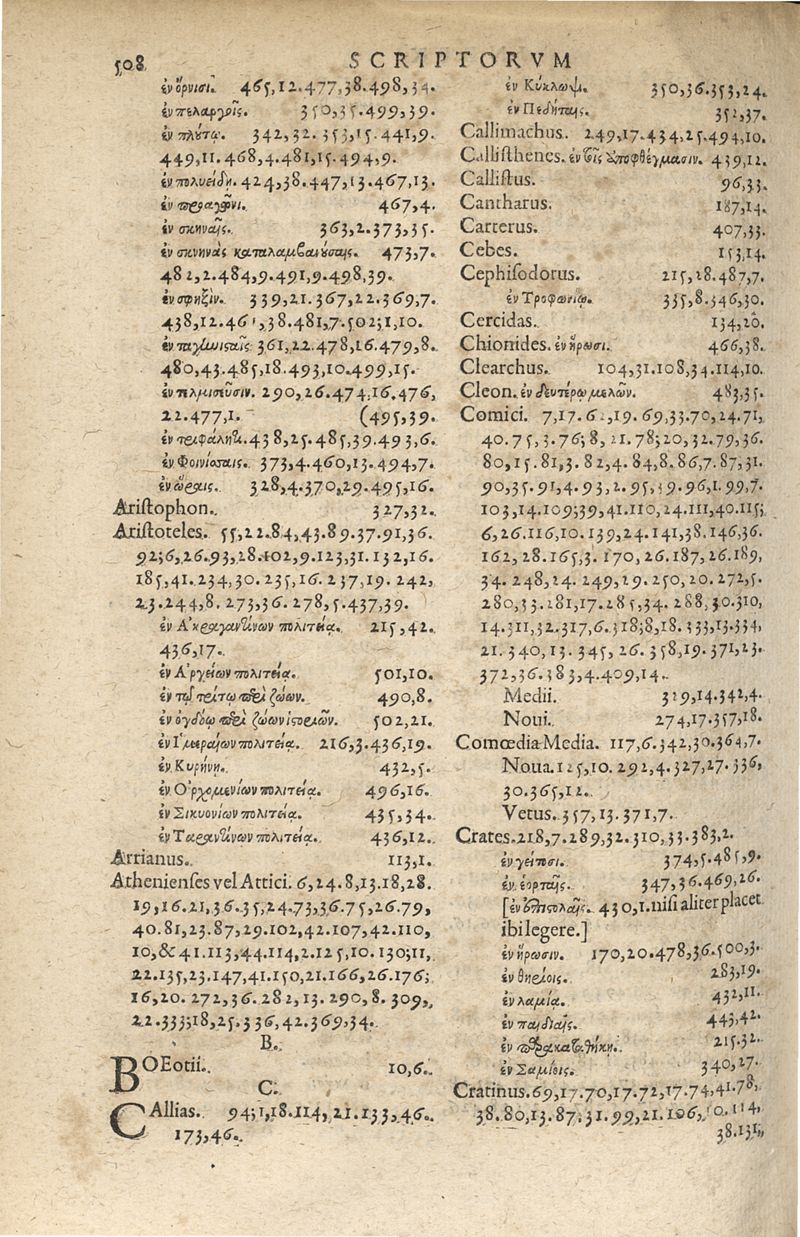 508 SCRIPTORVM
ἐν ὄρνισι. 465,12.477,38.498,34.
ἐν πελαργοῖς. 350,35.499,39.
ἐν πλύτῳ. 342,32. 353,15.441,9.
449,11.468,4.481,15.494,9.
ἐν πολυείδῃ. 424,38.447,13.467,13.
ἐν προαγῶνι. 467,4.
ἐν σκηναῖς. 363,2.373,35.
ἐν σκηνὰς καταλαμβανούσαις. 473,7.
482,2.484,9.491,9.498,39.
ἐν σφηξίν. 339,21.367,22.369,7.
438,12.46 ,38.481,7.502;1,10.
ἐν ταγηνισταῖς 361,22.478,16.479,8.
480,43.485,18.493,10.499,15.
ἐν τελμισεῦσιν. 290,26.474,16.476,
22.477,1. (495,39.
ἐν τριφάλητι. 438,25.485,39.493,6.
ἐν Φοινίσσαις. 373,4.460,13.494,7.
ἐν ὥραις. 328,4.370,29.495,16.
Aristophon. 327,32.
Aristoteles. 55,22.84,43.89.37.91,36.
92;6,26.93,28.102,9.123,31.132,16.
185,41.234,30.235,16.237,19. 242,
23.244,8. 273,36. 278,5.437,39.
ἐν Ἀκραγαντίνων πολιτείᾳ. 215,42.
436,17.
ἐν Ἀργείων πολιτείᾳ. 501,10.
ἐν τῷ τρίτῳ περὶ ζώων. 490,8.
ἐν ὀγδόῳ περὶ ζώων ἱστοριῶν. 502,21.
ἐν Ἱμεραίων πολιτείᾳ. 216,3.436,19.
ἐν Κυρήνῃ. 432,5.
ἐν Ὀρχομενίων πολιτείᾳ. 496,16.
ἐν Σικυονίων πολιτείᾳ. 435,34.
ἐν Ταραντίνων πολιτείᾳ. 436,12.
Arrianus. 113,1.
Athenienses vel Attici. 6,24.8,13.18,28.
19,16.21,36.35,24.73,36.75,26.79,
40.81,23.87,29.102,42.107,42.110,
10,&41.113,44.114,2.125,10.130;11,
22.135,23.147,41.150,21.166,26.176;
16,20. 272,36. 282,13. 290,8. 309,
22.333;18,25.336,42.369,34.
B.
BOEotii. 10,6.
C.
CAllias. 94;1,18.114,21.133,46.
173,46.
ἐν Κύκλωψι. 350,36.353,24.
ἐν Πεδήταις. 352,37.
Callimachus. 249,17.434,25.494,10.
Callisthenes. ἐν τοῖς ἀποφθέγμασιν. 439,12.
Callistus. 96,33.
Cantharus. 187,14.
Carterus. 407,33.
Cebes. 153,14.
Cephisodorus. 215,28.487,7.
ἐν Τροφωνίῳ. 335,8.346,30.
Cercidas. 134,20.
Chionides. ἐν ἥρωσι. 466,38.
Clearchus. 104,31.108,34.114,10.
Cleon. ἐν δευτέρῳ μελῶν. 483,35.
Comici. 7,17.62,19.69,33.70,24.71,
40.75,3.76;8,21.78;20,32.79,36.
80,15.81,3.82,4.84,8.86,7.87,31.
90,35.91,4.93,2.95,39.96,1.99,7.
103,14.109;39,41.110,24.111,40.115;
6,26.116,10.139,24.141,38.146,36.
162,28.165,3.170,26.187,26.189,
34. 248,24. 249,29.250,20.272,5.
280,33.281,17.285,34. 288,30.310,
14.311,32.317,6.318;8,18.333,13.334,
21. 340,13. 345, 26.358,19.371,23.
372,36.383,4.409,14.
Medii. 329,14.342,4.
Noui. 274,17.357,18.
Comœdia Media. 117,6.342,30.364,7.
Noua. 125,10. 292,4.327,27.336,
30.365,12.
Vetus. 357,13.371,7.
Crates. 218,7.289,32.310,33.383,2.
ἐν γείτοσι. 374,5.485,9.
ἐν ἑορταῖς. 347,36.469,26.
[ἐν ἐπιστολαῖς. 430,1. nisi aliter placet
ibi legere.]
ἐν ἥρωσιν. 170,20.478,36.500,3.
ἐν θηρίοις. 283,19.
ἐν λαμίᾳ. 432,11.
ἐν παιδιαῖς. 443,42.
ἐν παρακαταθήκῃ. 215.32.
ἐν Σαμίοις. 340,27.
Cratinus. 69,17.70,17.72,17.74,41.78,
38.80,13.87,31.99,21.106, 0.114,
38.131,